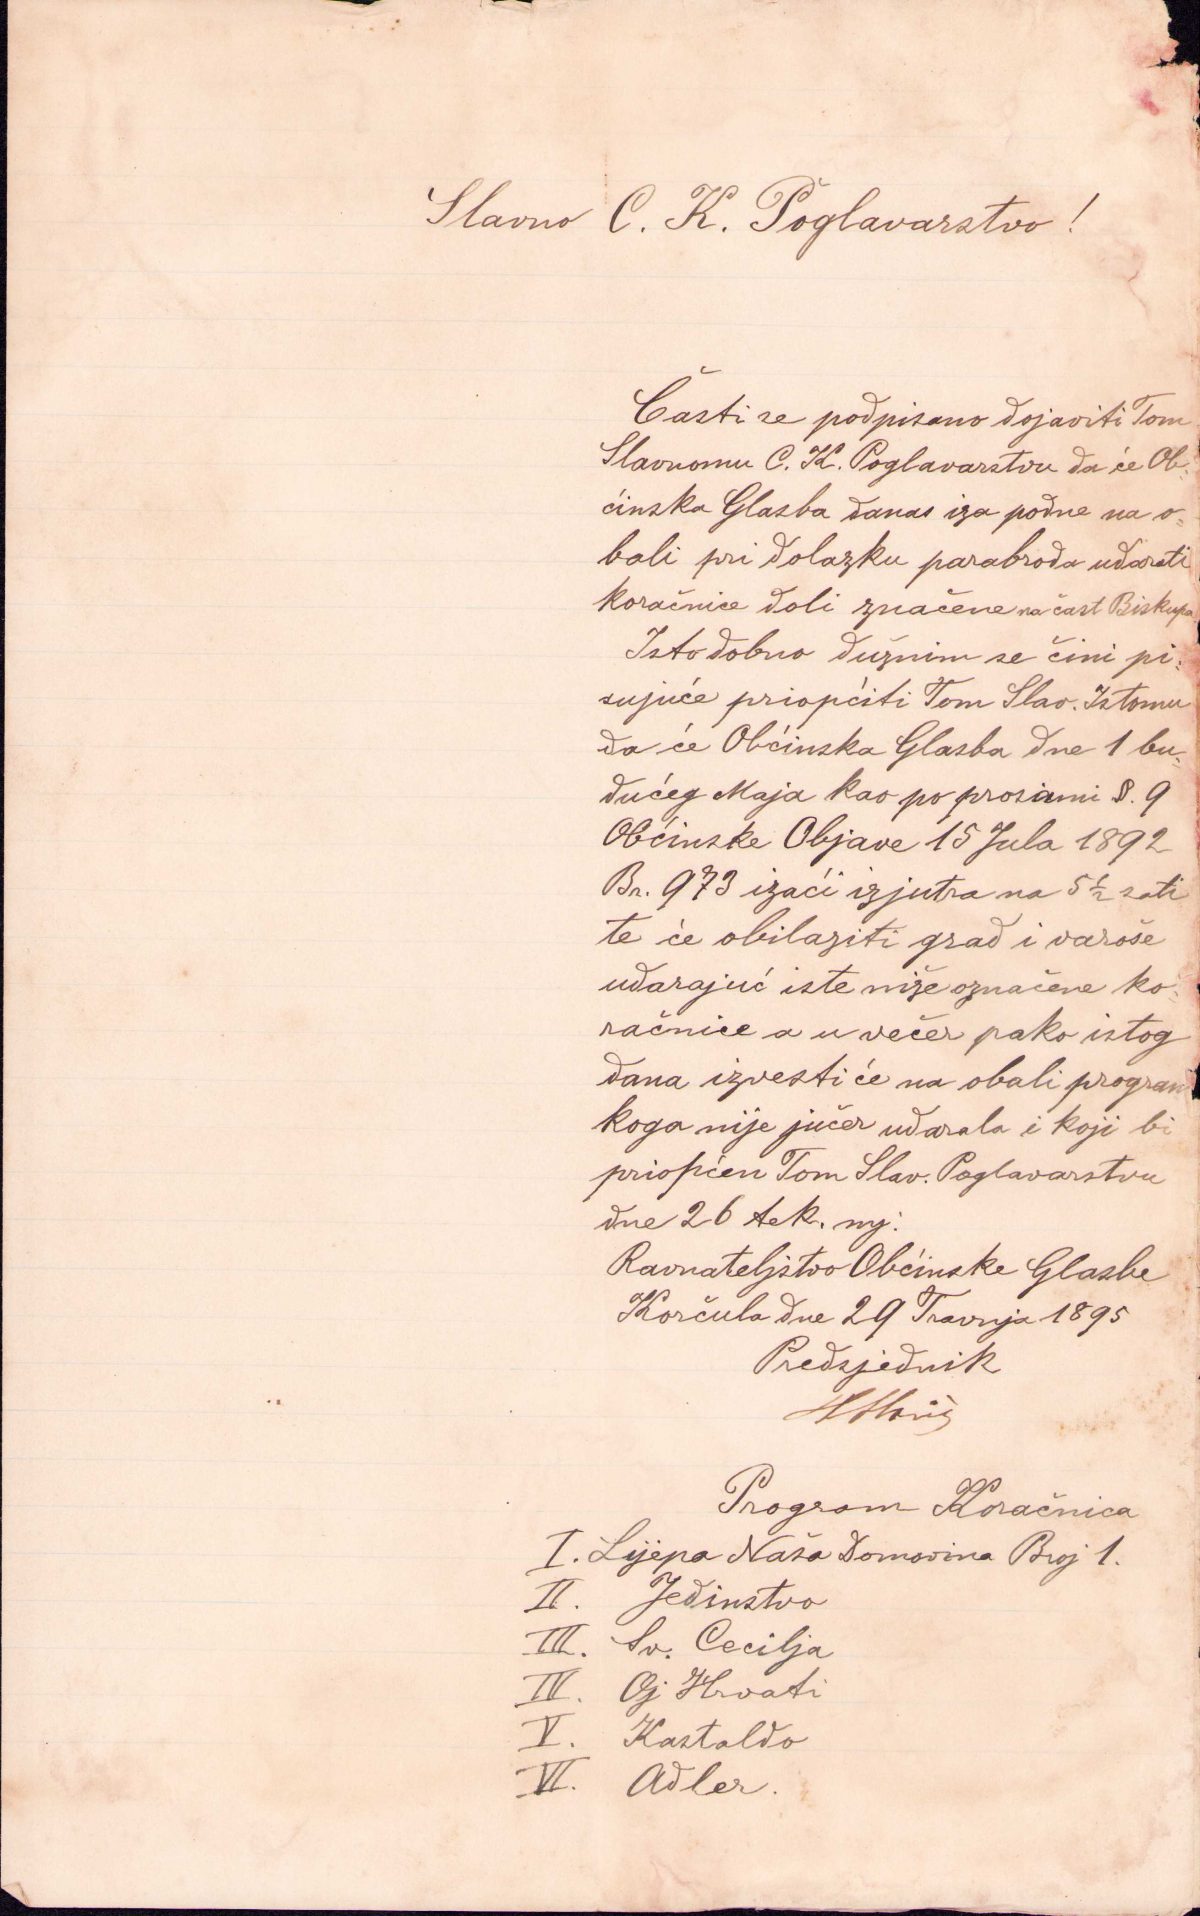 Slavno C. K. Poglavarstvo!
Časti se podpisano dojaviti Tom
Slavnomu C. K. Poglavarstvu da će Ob=
ćinska Glasba danas iza podne na o=
bali pri dolazku parabroda udarati
koračnice doli značene na čast Biskupa
Isto dobno dužnim se čini pi=
sujuće priopćiti Tom Slav. Istomu
da će Obćinska Glasba dne 1 bu=
dućeg Maja kao po prosiami §. 9
Obćinske Objave 15 Jula 1892
Br. 973 izaći izjutra na 5½ sati
te će obilaziti grad i varoše
udarajuć iste niže označene ko=
račnice a u večer pako istog
dana izvesti će na obali program
koga nije jučer udarala i koji bi
priopćen Tom Slav. Poglavarstvu
dne 26 tek. mj:
Ravnateljstvo Obćinske Glasbe
Korčula dne 29 Travnja 1895
Predsjednik
Program Koračnica
I. Lijepa Naša Domovina Broj 1.
II. Jedinstvo
III. Sv. Cecilja
IV. Oj Hrvati
V. Kastaldo
VI. Adler.